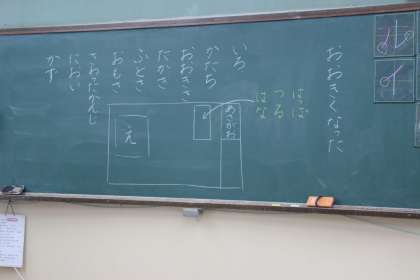 おおきくなった
はっぱ
つる
はな
いろ
かたち
おおきさ
たかさ
ふとさ
おもさ
さわったかんじ
におい
かず
あさがお
え